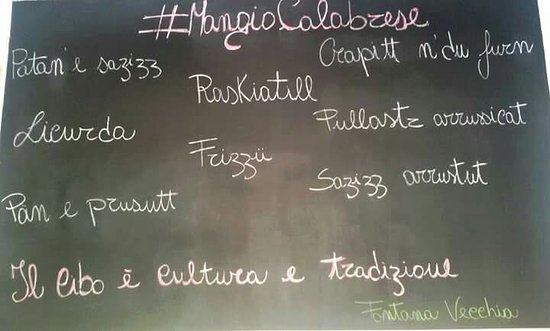 #MangioCalabrese
Patan' e sazizz
Crapitt n'du furn
Raskiatill
Licurda
Pullastr arrussicat
Frizzü
Sazizz arrustut
Pàn e prusutt
Il Cibo è cultura e tradizione
Fontana Vecchia